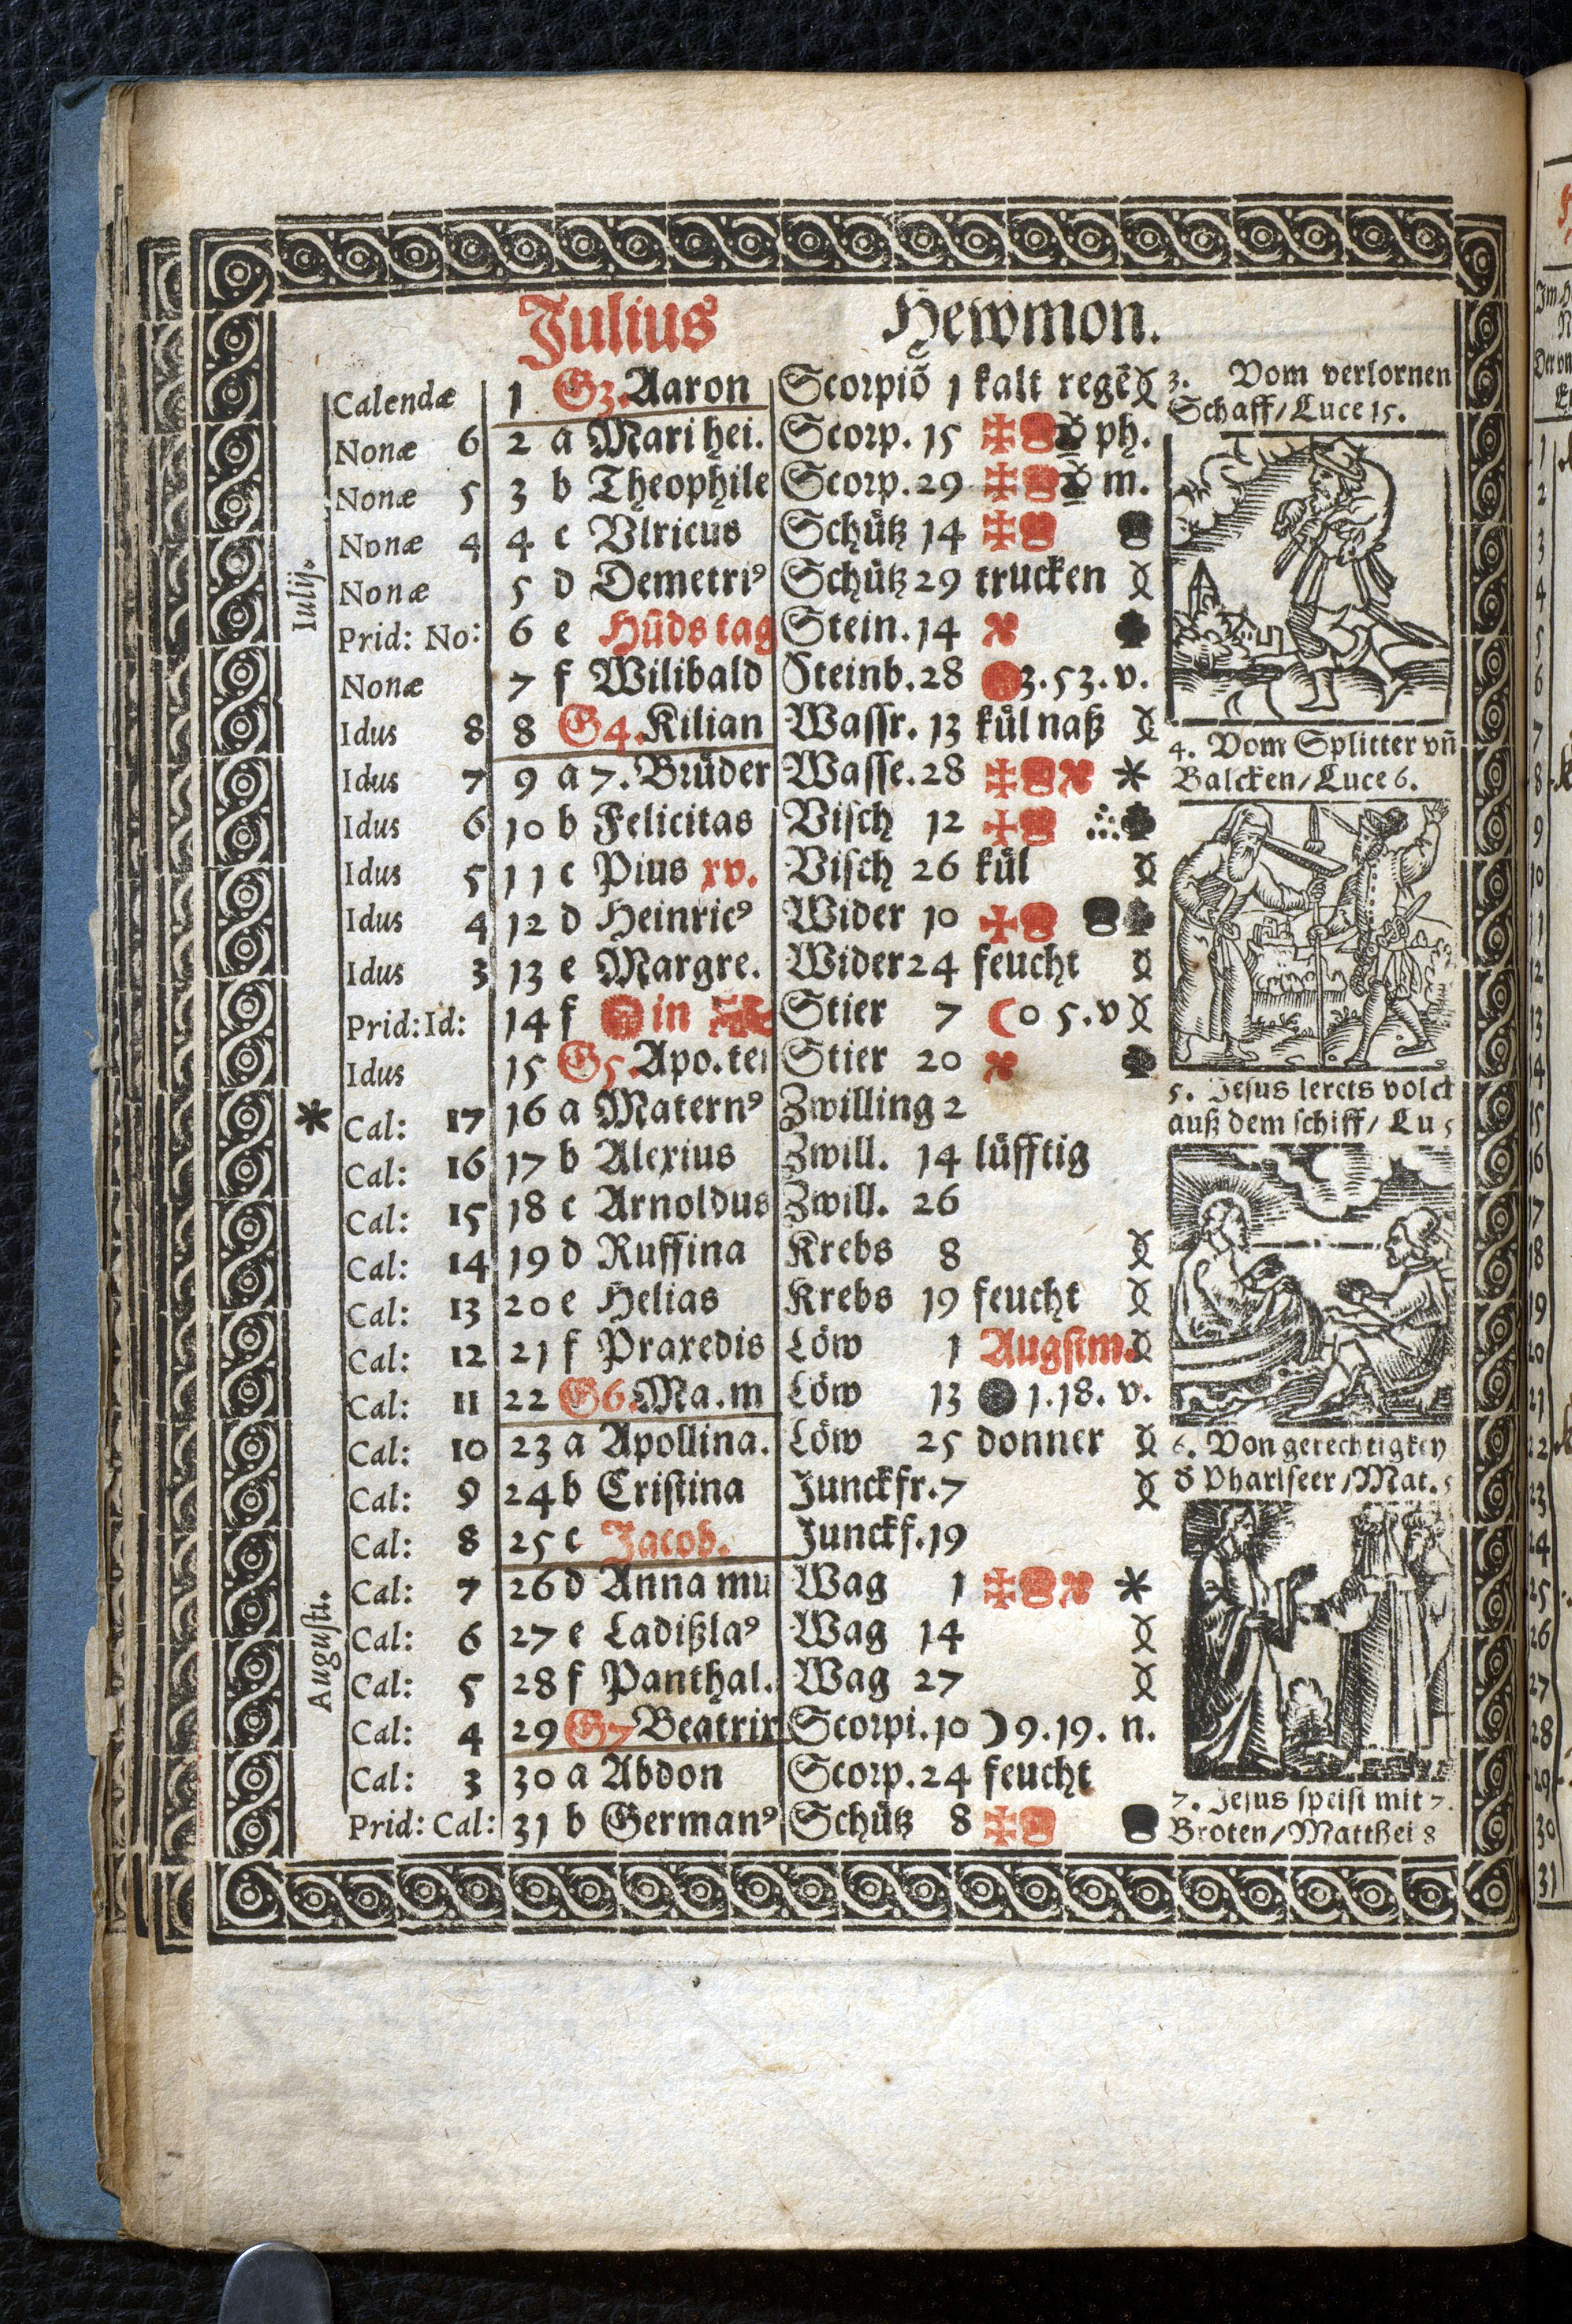 Julius Hewmon.
Calendæ 1 G3. Aaron Scorpiõ 1 kalt regẽ
Nonæ 6 2 a Mari hei. Scorp. 15 ph.
Nonæ 5 3 b Theophile Scorp. 29 m.
Nonæ 4 4 c Vlricus Schütz 14
Nonæ 5 d Demetriꝰ Schütz 29 trucken
Prid: No: 6 e Hũds tag Stein. 14
Nonæ 7 f Wilibald Steinb. 28 3. 53. v.
Idus 8 8 G4. Kilian Wassr. 13 kül naß
Idus 7 9 a 7. Brüder Wasse. 28
Idus 6 10 b Felicitas Visch 12
Idus 5 11 c Pius xv. Visch 26 kül
Idus 4 12 d Heinricꝰ Wider 10
Idus 3 13 e Margre. Wider 24 feucht
Prid: Id: 14 f in Stier 7 ☾ 0 5. v
Idus 15 G5. Apo. tei Stier 20
Cal: 17 16 a Maternꝰ Zwilling 2
Cal: 16 17 b Alexius Zwill. 14 lüfftig
Cal: 15 18 c Arnoldus Zwill. 26
Cal: 14 19 d Ruffina Krebs 8
Cal: 13 20 e Helias Krebs 19 feucht
Cal: 12 21 f Praxedis Löw 1 Augstm.
Cal: 11 22 G6. Ma. m Löw 13 1. 18. v.
Cal: 10 23 a Apollina. Löw 25 donner
Cal: 9 24 b Cristina Junckfr. 7
Cal: 8 25 c Jacob. Junckf. 19
Cal: 7 26 d Anna mu Wag 1
Cal: 6 27 e Ladißlaꝰ Wag 14
Cal: 5 28 f Panthal. Wag 27
Cal: 4 29 G7 Beatrix Scorpi. 10 ☽ 9. 19. n.
Cal: 3 30 a Abdon Scorp. 24 feucht
Prid: Cal: 31 b Germanꝰ Schütz 8
Iulij.
Augusti.
3. Vom verlornen
Schaff/ Luce 15.
4. Vom Splitter vñ
Balcken/ Luce 6.
5. Jesus lerets volck
auß dem schiff/ Lu 5
6. Von gerechtigkey
Phariseer/ Mat. 5
7. Jesus speist mit 7.
Broten/ Matthei 8